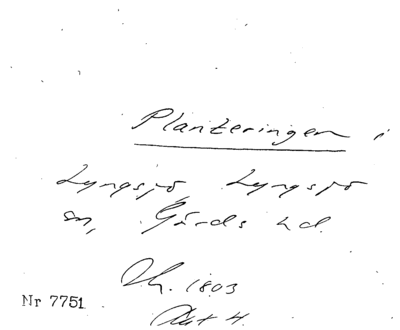 Planteringen i
Lyngsjö, Lyngsjö
sn, Gärds hd.
1803
Nr 7751
Akt 4.